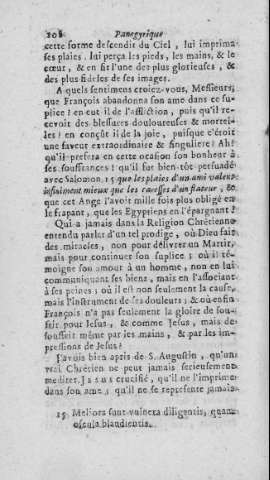 208 Panegyrique
cette forme descendit du Ciel, lui imprima
ses plaies, lui perça les pieds, les mains, & le
cœur, & en fit l'une des plus glorieuses, &
des plus fideles de ses images.
A quels sentimens croiez-vous, Messieurs,
que François abandonna son ame dans ce su-
plice ? en eut-il de l'affliction, puis qu'il re-
cevoit des blessures douloureuses & mortel-
les ? en conçût-il de la joie, puisque c'étoit
une faveur extraordinaire & singuliere ? Ah !
qu'il préfera en cette ocasion son bonheur à
ses souffrances ! qu'il fut bien-tôt persuadé
avec Salomon. 15 que les plaies d'un ami valent
infiniment mieux que les caresses d'un flateur, &
que cet Ange l'avoit mille fois plus obligé en
le frapant, que les Egyptiens en l'épargnant ?
Qui-a jamais dans la Religion Chrétienne
entendu parler d'un tel prodige, où Dieu fait
des miracles, non pour délivrer un Martir,
mais pour continuer son suplice ; où il té-
moigne son amour à un homme, non en lui
communiquant ses biens, mais en l'associant
à ses peines ; où il est non seulement la cause,
mais l'instrument de ses douleurs ; & où enfin
François n'a pas seulement la gloire de sou-
frir pour Jesus, & comme Jesus, mais de
souffrir même par ses mains, & par les im-
pressions de Jesus ?
J'avois bien apris de S. Augustin, qu'un
vrai Chrétien ne peut jamais serieusement
mediter Jesus crucifié, qu'il ne l'imprime
dans son ame ; qu'il ne se represente jamais
15 Meliora sunt vulnera diligentis, quam
oscula blandientis.